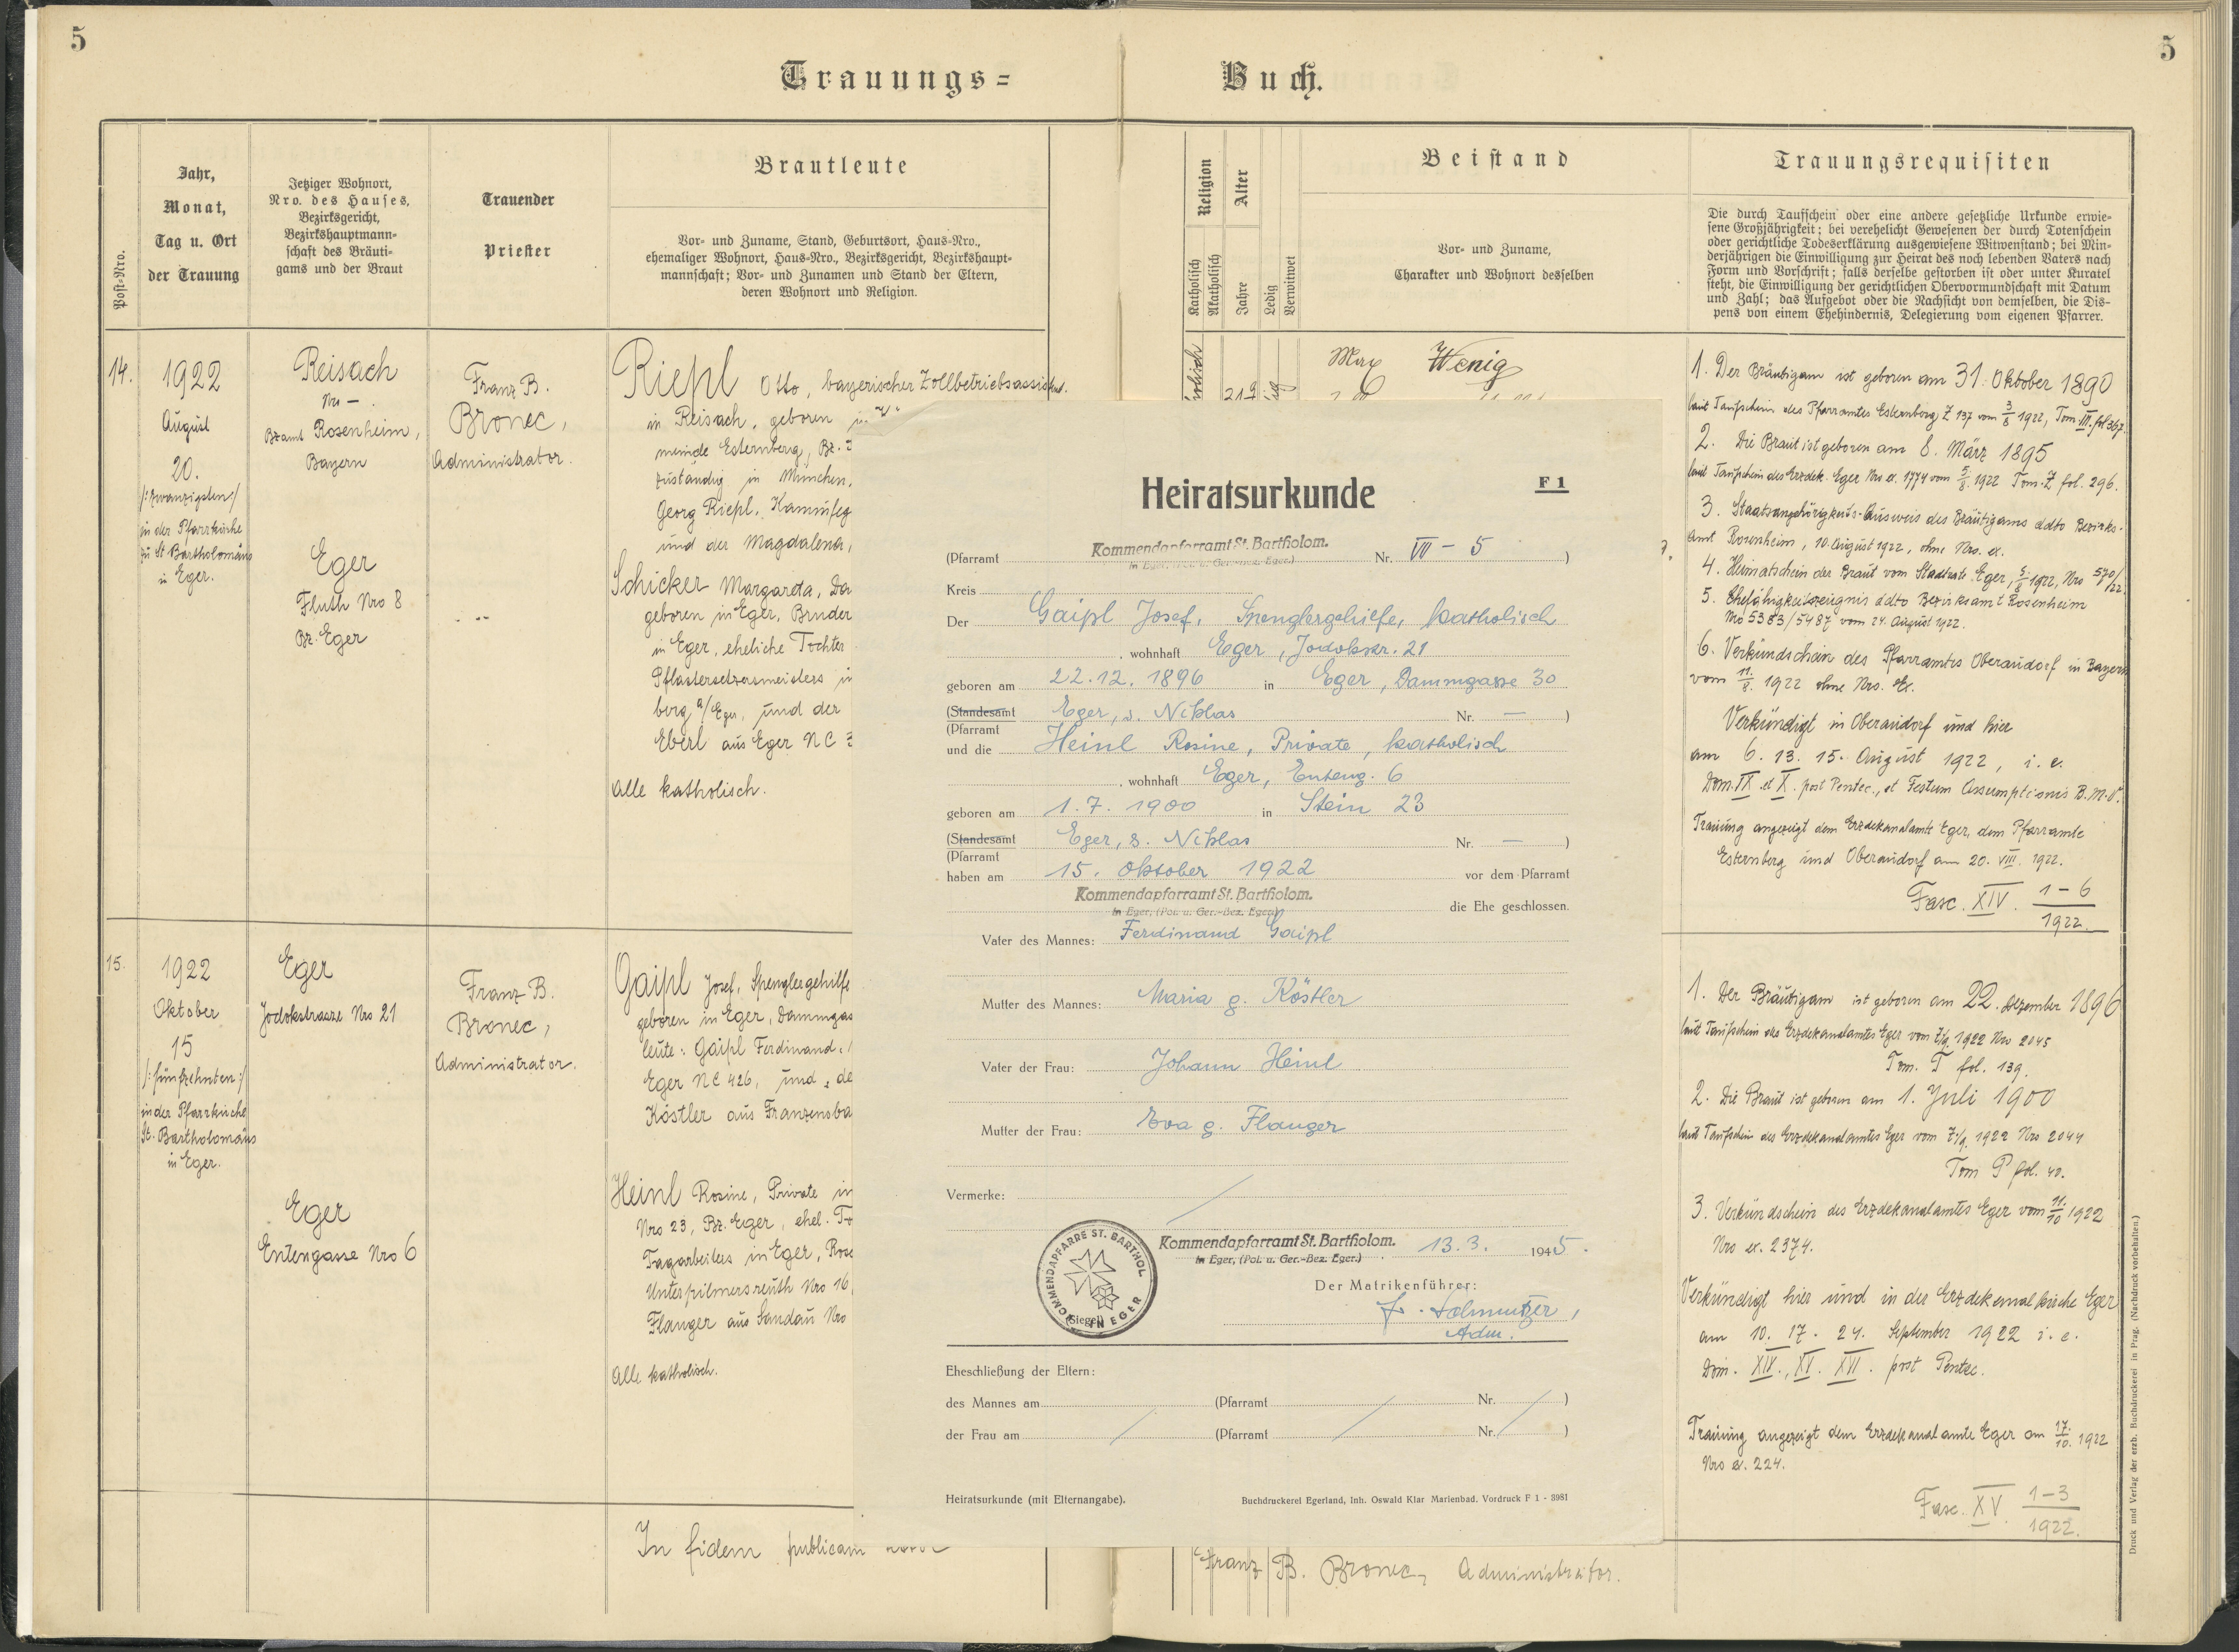 5
5
Trauungs=
Buch.
Post=Nro.
Jahr,
Monat,
Tag u. Ort
der Trauung
Jetziger Wohnort,
Nro. des Hauses,
Bezirksgericht,
Bezirkshauptmann=
schaft des Bräuti=
gams und der Braut
Trauender
Priester
Brautleute
Vor= und Zuname, Stand, Geburtsort, Haus=Nro.,
ehemaliger Wohnort, Haus=Nro., Bezirksgericht, Bezirkshaupt=
mannschaft; Vor= und Zunamen und Stand der Eltern,
deren Wohnort und Religion.
Religion
Katholisch
Akatholisch
Alter
Jahre
Ledig
Verwitwet
Beistand
Vor= und Zuname,
Charakter und Wohnort desselben
Trauungsrequisiten
Die durch Taufschein oder eine andere gesetzliche Urkunde erwie=
sene Großjährigkeit; bei verehelicht Gewesenen der durch Totenschein
oder gerichtliche Todeserklärung ausgewiesene Witwenstand; bei Min=
derjährigen die Einwilligung zur Heirat des noch lebenden Vaters nach
Form und Vorschrift; falls derselbe gestorben ist oder unter Kuratel
steht, die Einwilligung der gerichtlichen Obervormundschaft mit Datum
und Zahl; das Aufgebot oder die Nachsicht von demselben, die Dis=
pens von einem Ehehindernis, Delegierung vom eigenen Pfarrer.
14.
1922
August
20.
/:zwanzigsten:/
in der Pfarrkirche
zu St Bartholomäus
in Eger.
Reisach
Nro - .
Bzamt Rosenheim,
Bayern
Eger
Fluth Nro 8
Bz. Eger
Franz B.
Bronec,
Administrator.
Riepl Otto, bayerischer Zollbetriebsassistent.
in Reisach, geboren in
meinde Esternberg, Bz.
zuständig in München,
Georg Riepl, Kaminfeg
und der Magdalena,
Schicker Margareta,
geboren in Eger, Bruder
in Eger, eheliche Tochter
Pflastersetzersmeisters in
berg a/Eger, und der
Eberl aus Eger NC
Alle katholisch.
Max Wenig
1. Der Bräutigam ist geboren am 31. Oktober 1890
laut Taufschein des Pfarramtes Esternberg Z 137 vom 3/8 1922, Tom III. fol 367.
2. Die Braut ist geboren am 8. März 1895
laut Taufschein des Erzdek. Eger Nro ex. 1774 vom 5/8. 1922 Tom. Z fol. 296.
3. Staatsangehörigkeits-Ausweis des Bräutigams ddto Bezirks-
amt Rosenheim, 10. August 1922, ohne Nro. ex.
4. Heimatschein der Braut vom Stadtrate Eger, 5/8 1922, Nro 570/22.
5. Ehefähigkeitszeugnis ddto Bezirksamt Rosenheim
Nro 5383/5487 vom 24. August 1922.
6. Verkündschein des Pfarramtes Oberaudorf in Bayern
vom 11./8. 1922 ohne Nro. Ex.
Verkündigt in Oberaudorf und hier
am 6. 13. 15. August 1922, i. e.
Dom. IX. et X. post Pentec., et Festum Assumptionis B. M. V.
Trauung angezeigt dem Erzdekanalamte Eger, dem Pfarramte
Esternberg und Oberaudorf am 20. VIII. 1922.
Fasc. XIV. 1-6
1922.
15.
1922
Oktober
15
/:fünfzehnten:/
in der Pfarrkirche
St. Bartholomäus
in Eger.
Eger
Jodokstrasse Nro 21
Eger
Entengasse Nro 6
Franz B.
Bronec,
Administrator.
Gaipl Josef, Spenglergehilfe
geboren in Eger, Dammgas
leute: Gaipl Ferdinand,
Eger NC 426, und de
Köstler aus Franzensba
Heinl Rosine, Private in
Nro 23, Bz. Eger, ehel.
Tagarbeiters in Eger, Rose
Unterpilmersreuth Nro 16
Flauger aus Sandau Nro
Alle katholisch.
1. Der Bräutigam ist geboren am 22. Dezember 1896
laut Taufschein des Erzdekanalamtes Eger vom 7/9. 1922 Nro 2045
Tom. T fol. 139.
2. Die Braut ist geboren am 1. Juli 1900
laut Taufschein des Erzdekanalamtes Eger vom 7/9. 1922 Nro 2044
Tom P fol. 40.
3. Verkündschein des Erzdekanalamtes Eger vom 11./10 1922
Nro ex. 2374.
Verkündigt hier und in der Erzdekanalkirche Eger
am 10. 17. 24. September 1922 i. e.
Dom. XIV., XV. XVI. post Pentec.
Trauung angezeigt dem Erzdekanalamte Eger am 17./10. 1922
Nro ex. 224.
Fasc. XV. 1-3
1922.
In fidem publicam
Franz B. Bronec, Administrator.
Druck und Verlag der erzb. Buchdruckerei in Prag. (Nachdruck vorbehalten.)
Heiratsurkunde
F 1
(Pfarramt Kommendapfarramt St. Bartholom. Nr. VII - 5 )
in Eger, (Pol. u. Ger.-Bez. Eger.)
Kreis
Der Gaipl Josef, Spenglergehilfe, katholisch
, wohnhaft Eger, Jodokstr. 21
geboren am 22.12.1896 in Eger, Dammgasse 30
(Standesamt Eger, s. Niklas Nr. — )
(Pfarramt
und die Heinl Rosine, Private, katholisch
, wohnhaft Eger, Enteng. 6
geboren am 1.7.1900 in Stein 23
(Standesamt Eger, s. Niklas Nr. — )
(Pfarramt
haben am 15. Oktober 1922 vor dem Pfarramt
Kommendapfarramt St. Bartholom.
in Eger, (Pol. u. Ger.-Bez. Eger.)
die Ehe geschlossen.
Vater des Mannes: Ferdinand Gaipl
Mutter des Mannes: Maria g. Köstler
Vater der Frau: Johann Heinl
Mutter der Frau: Eva g. Flauger
Vermerke:
KOMMENDAPFARRE ST. BARTHOL. IN EGER
(Siegel)
Kommendapfarramt St. Bartholom. 13.3. 1945.
in Eger, (Pol. u. Ger.-Bez. Eger.)
Der Matrikenführer:
Adm.
Eheschließung der Eltern:
des Mannes am (Pfarramt Nr. )
der Frau am (Pfarramt Nr. )
Heiratsurkunde (mit Elternangabe).
Buchdruckerei Egerland, Inh. Oswald Klar Marienbad. Vordruck F 1 - 3981